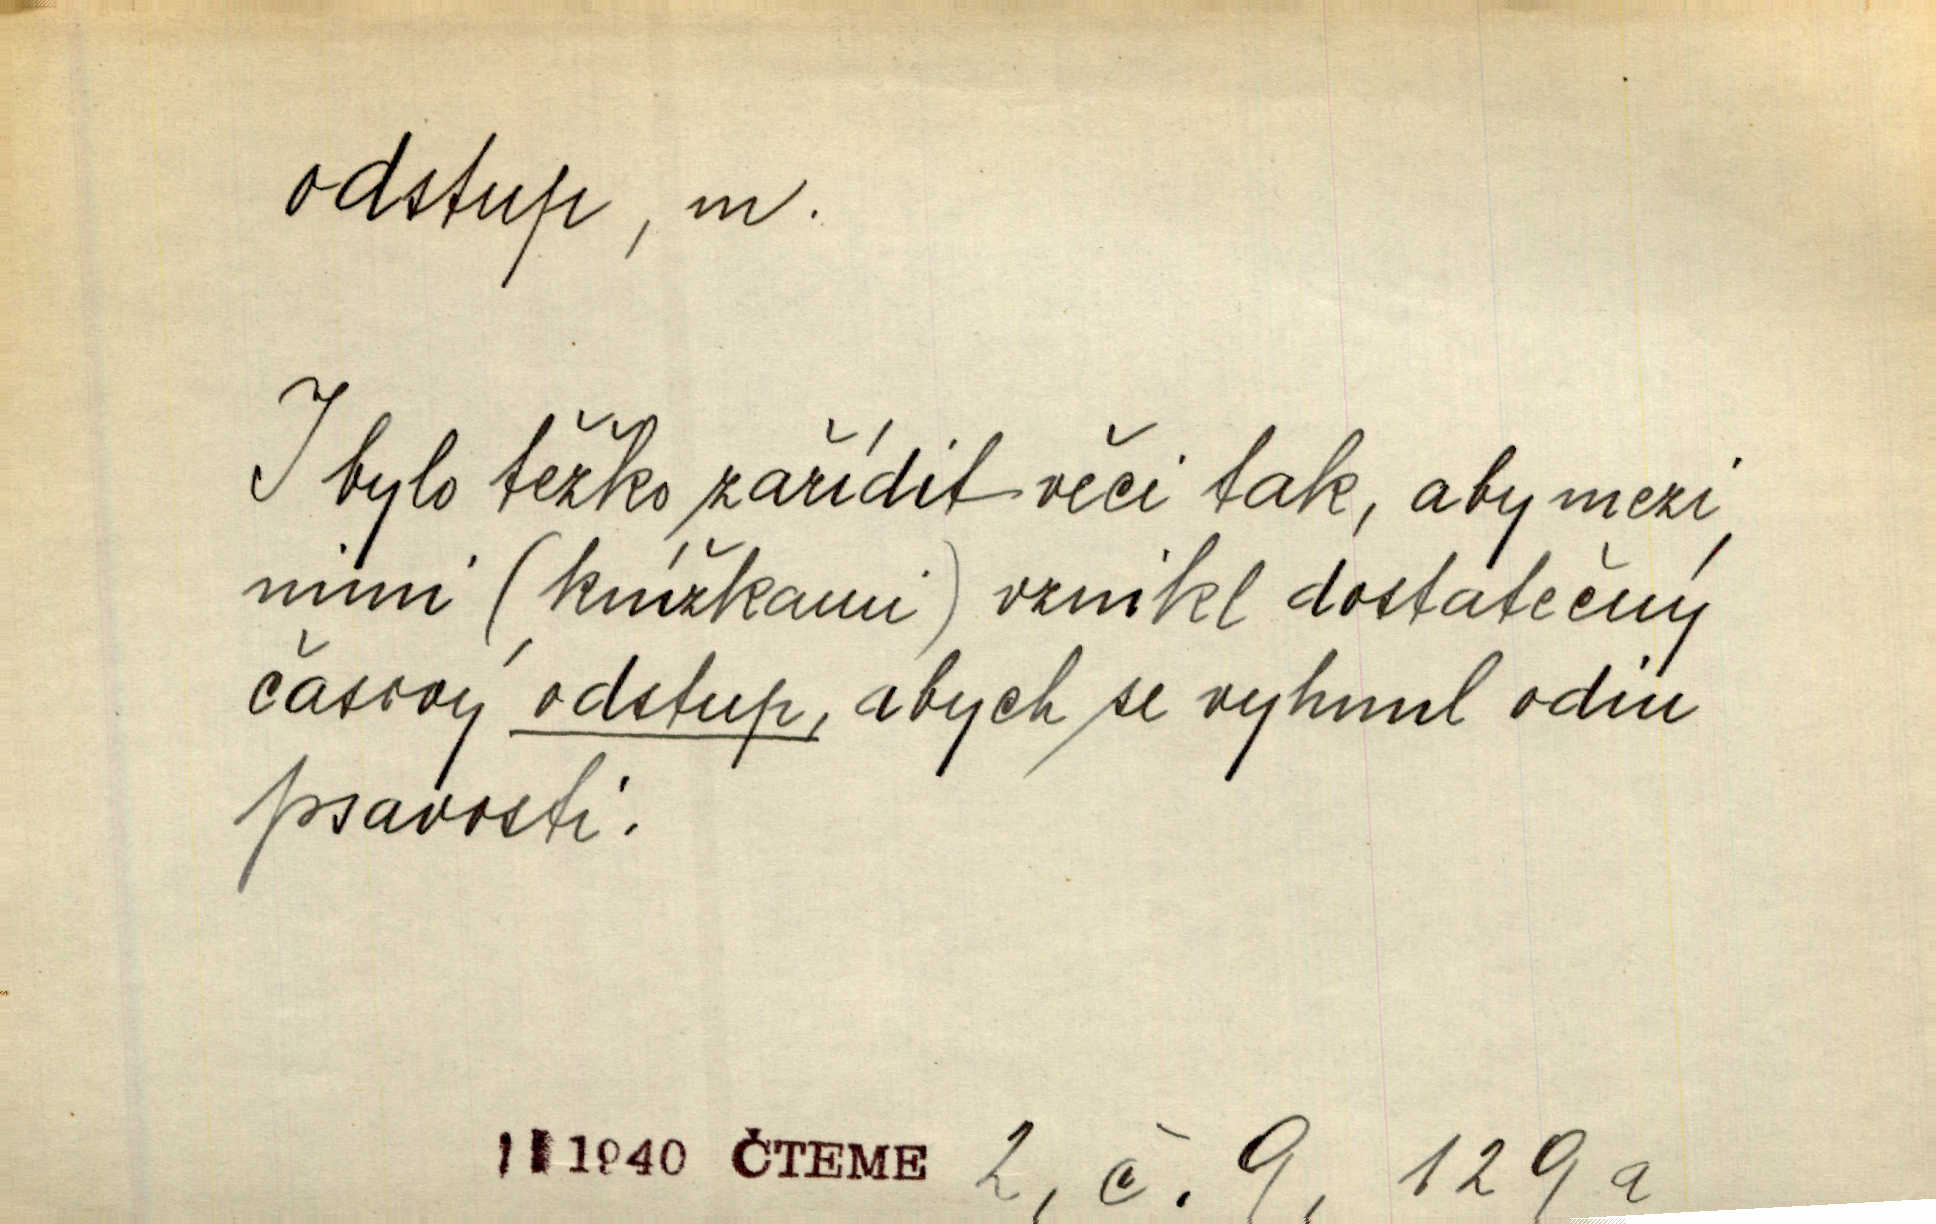 odstup, m.
I bylo těžko zařídit věci tak, aby mezi
nimi (knížkami) vznikl dostatečný
časový odstup, abych se vyhnul odiu
psavosti.
1940 ČTEME 2, č. 9, 129 a